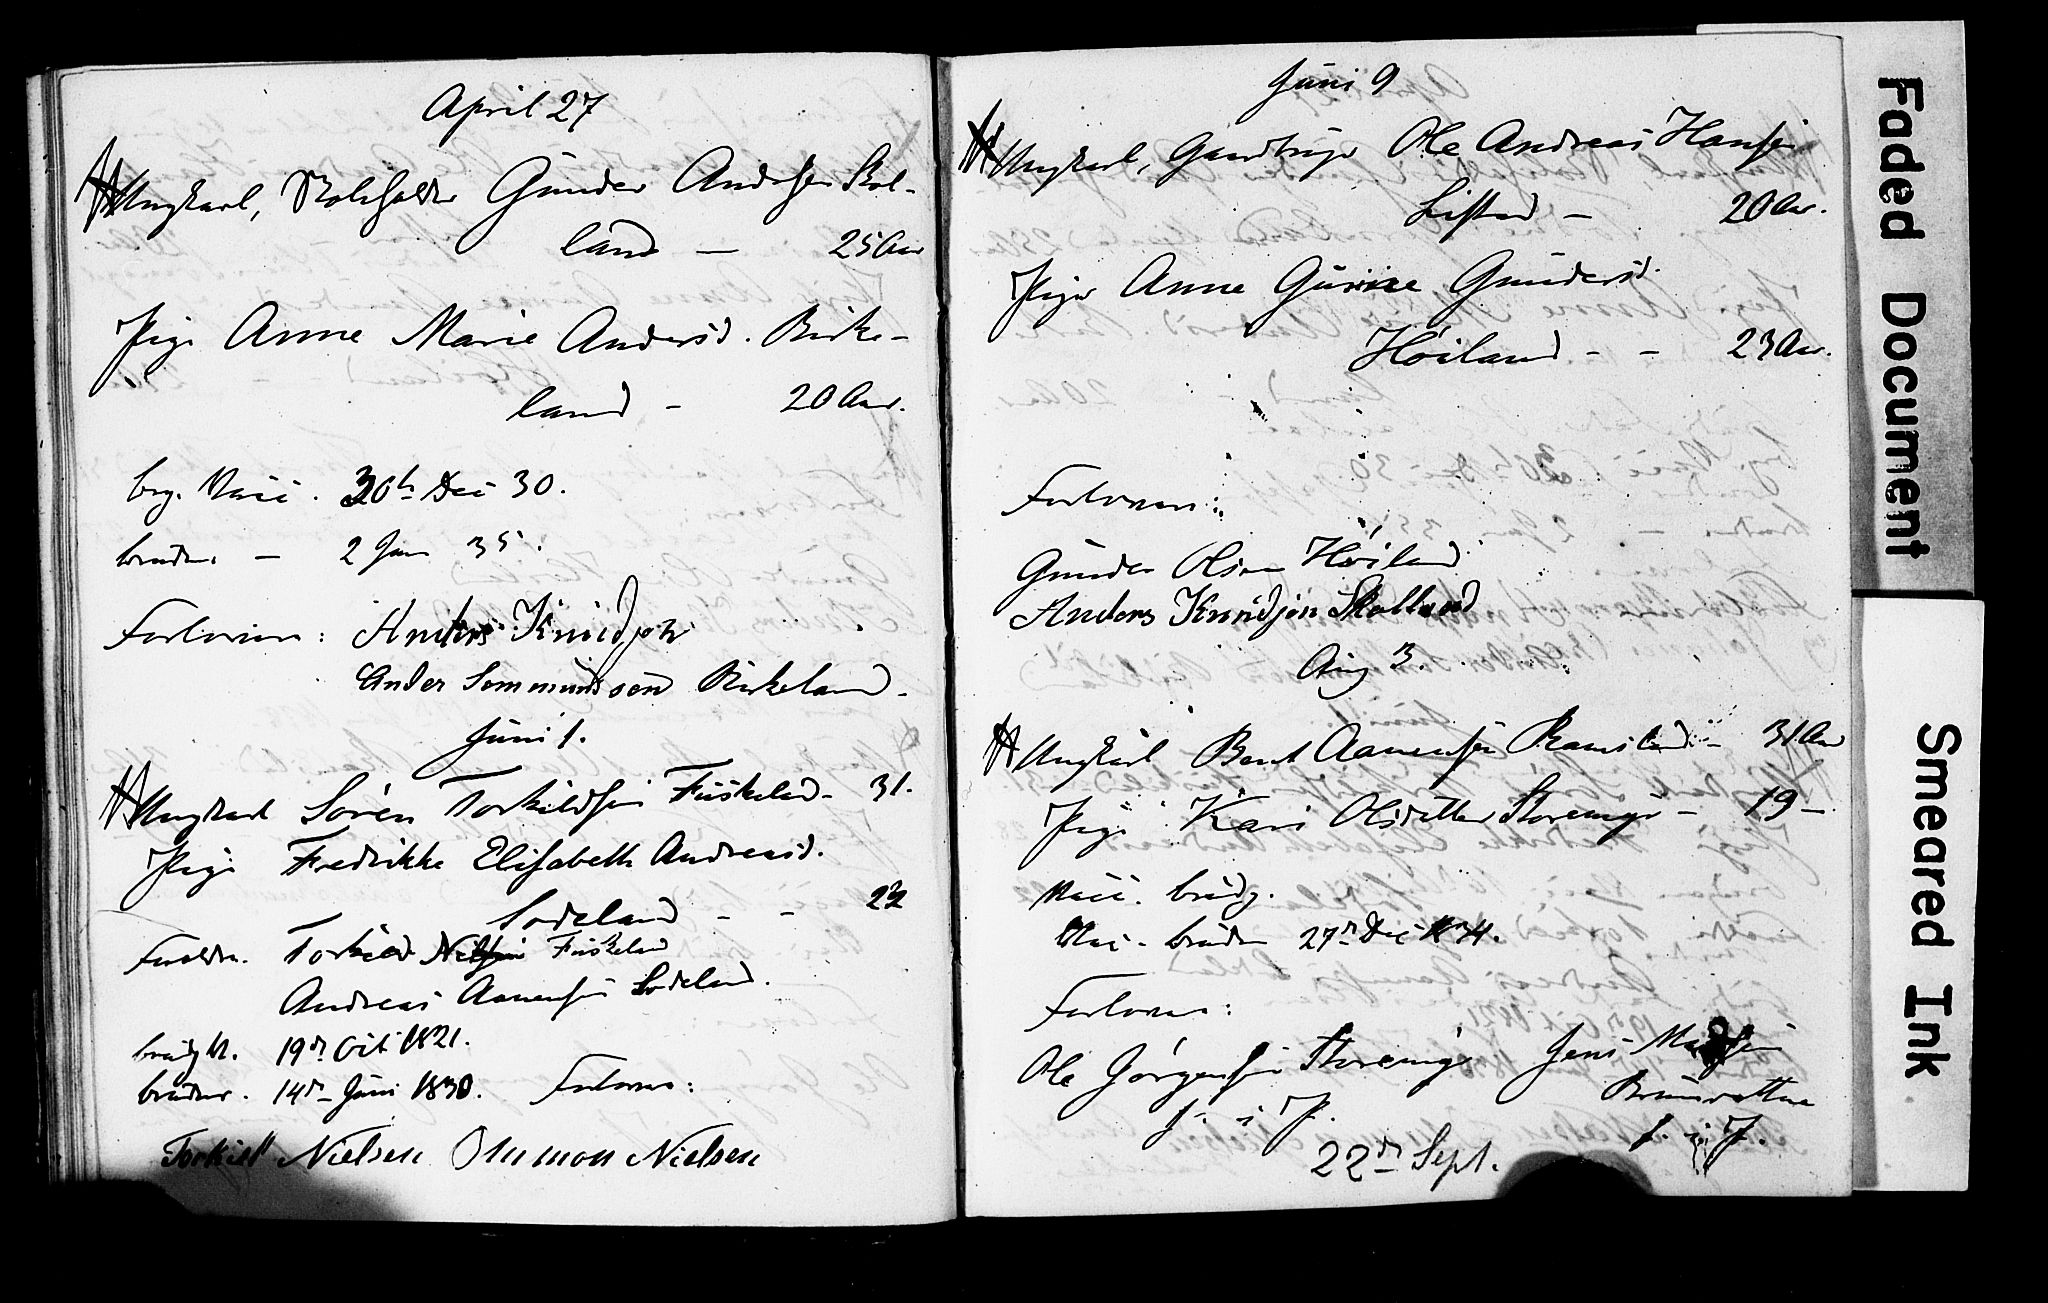 April 27
Ungkarl, Gunder Andersen Skol-
land — 25 Aar
Pige Anne Marie Andersd. Birke-
land - 20 Aar.
brg. Vacc. 30th Dec 30.
bruden — 2 Jan 35.
Forlovere: Anders Knudsøn
Ander Sommundsøn Birkeland.
Juni 1.
Ungkarl Sören Torkildsen Fuskeland - 31.
Pige Fredrikke Elisabeth Andreasd.
Lodeland - - 22
Foreldre. Torkild Nielsen Fuskeland
Andreas Aanensen Lodeland.
brudg V. 19de Oct 1821.
bruden. 14de Juni 1830. Forlovere:
Torkild Nielsen Ommon Nielsen
Juni 9
Ungkarl, Ole Andreas Hansen
Listad — 20 Aar.
Pige Anne Gurine Gundersd.
Höiland - - 23 Aar.
Forlovere:
Gunder Olsen Höiland
Anders Knudsøn Skolland
Aug 3.
Ungkarl Bent Aanensen Ramsland - 31 Aar
Pige Kari Olsdatter Storenge - 19 -
Vacc. brudg.
Vac - bruden 27de Dec 1834.
Forlovere:
Ole Jörgensen Storenge Jens
f. i P.
f. i P.
22de Sept.
Faded Document
Smeared Ink